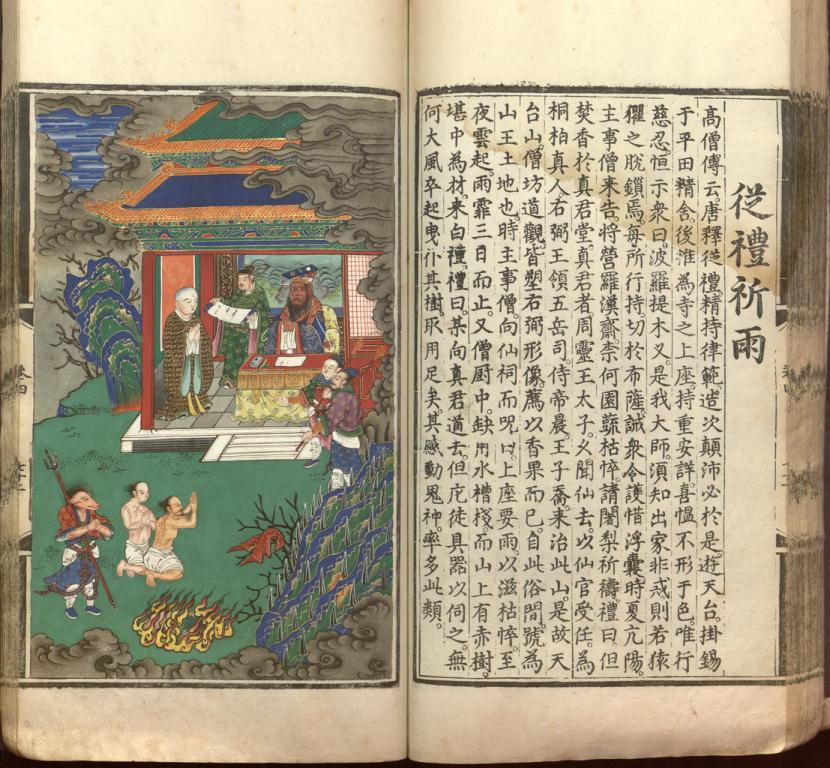 從禮祈雨
高僧傳云。唐釋從禮精持律範。造次顛沛必於是。遊天台。掛錫
于平田精舍。後淮為寺之上座。持重安詳。喜慍不形于色。唯行
慈忍。恒示衆曰。波羅提木叉。是我大師。須知出家非戒。則若猿
玃之脫鎖焉。每所行持。切於布薩。誠衆令護惜浮囊。時夏亢陽。
主事僧来告。將營羅漢齋。柰何園蔬枯悴。請闍梨祈禱。禮曰但
焚香於真君堂。真君者。周靈王太子。久聞仙去。以仙官受任。為
桐栢真人右弼王領五岳司。侍帝晨王子喬。来治此山。是故天
台山。僧坊道觀。皆塑右弼形像。薦以香果而已。自此俗間號為
山王土地也。時主事僧向仙祠而咒曰。上座要雨。以滋枯悴。至
夜雲起。雨霏三日而止。又僧厨中。缺用水槽棧。而山上有赤樹。
堪中為材。来白禮。禮曰。某向真君道去。但庀徒具器以伺之。無
何大風卒起。曳仆其樹。取用足矣。其感動鬼神。率多此類。
卷四